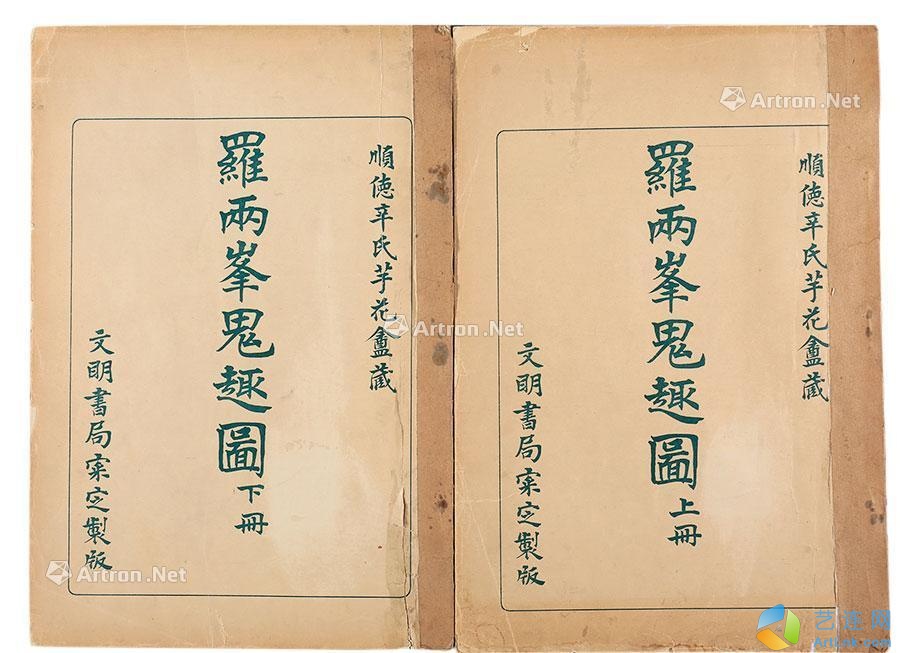 順徳辛氏芋花盦藏
羅兩峯鬼趣圖上冊
文明書局宷㝎製版
順徳辛氏芋花盦藏
羅兩峯鬼趣圖下冊
文明書局宷㝎製版
Artron.Net
Artron.Net
Artron.Net
艺连网